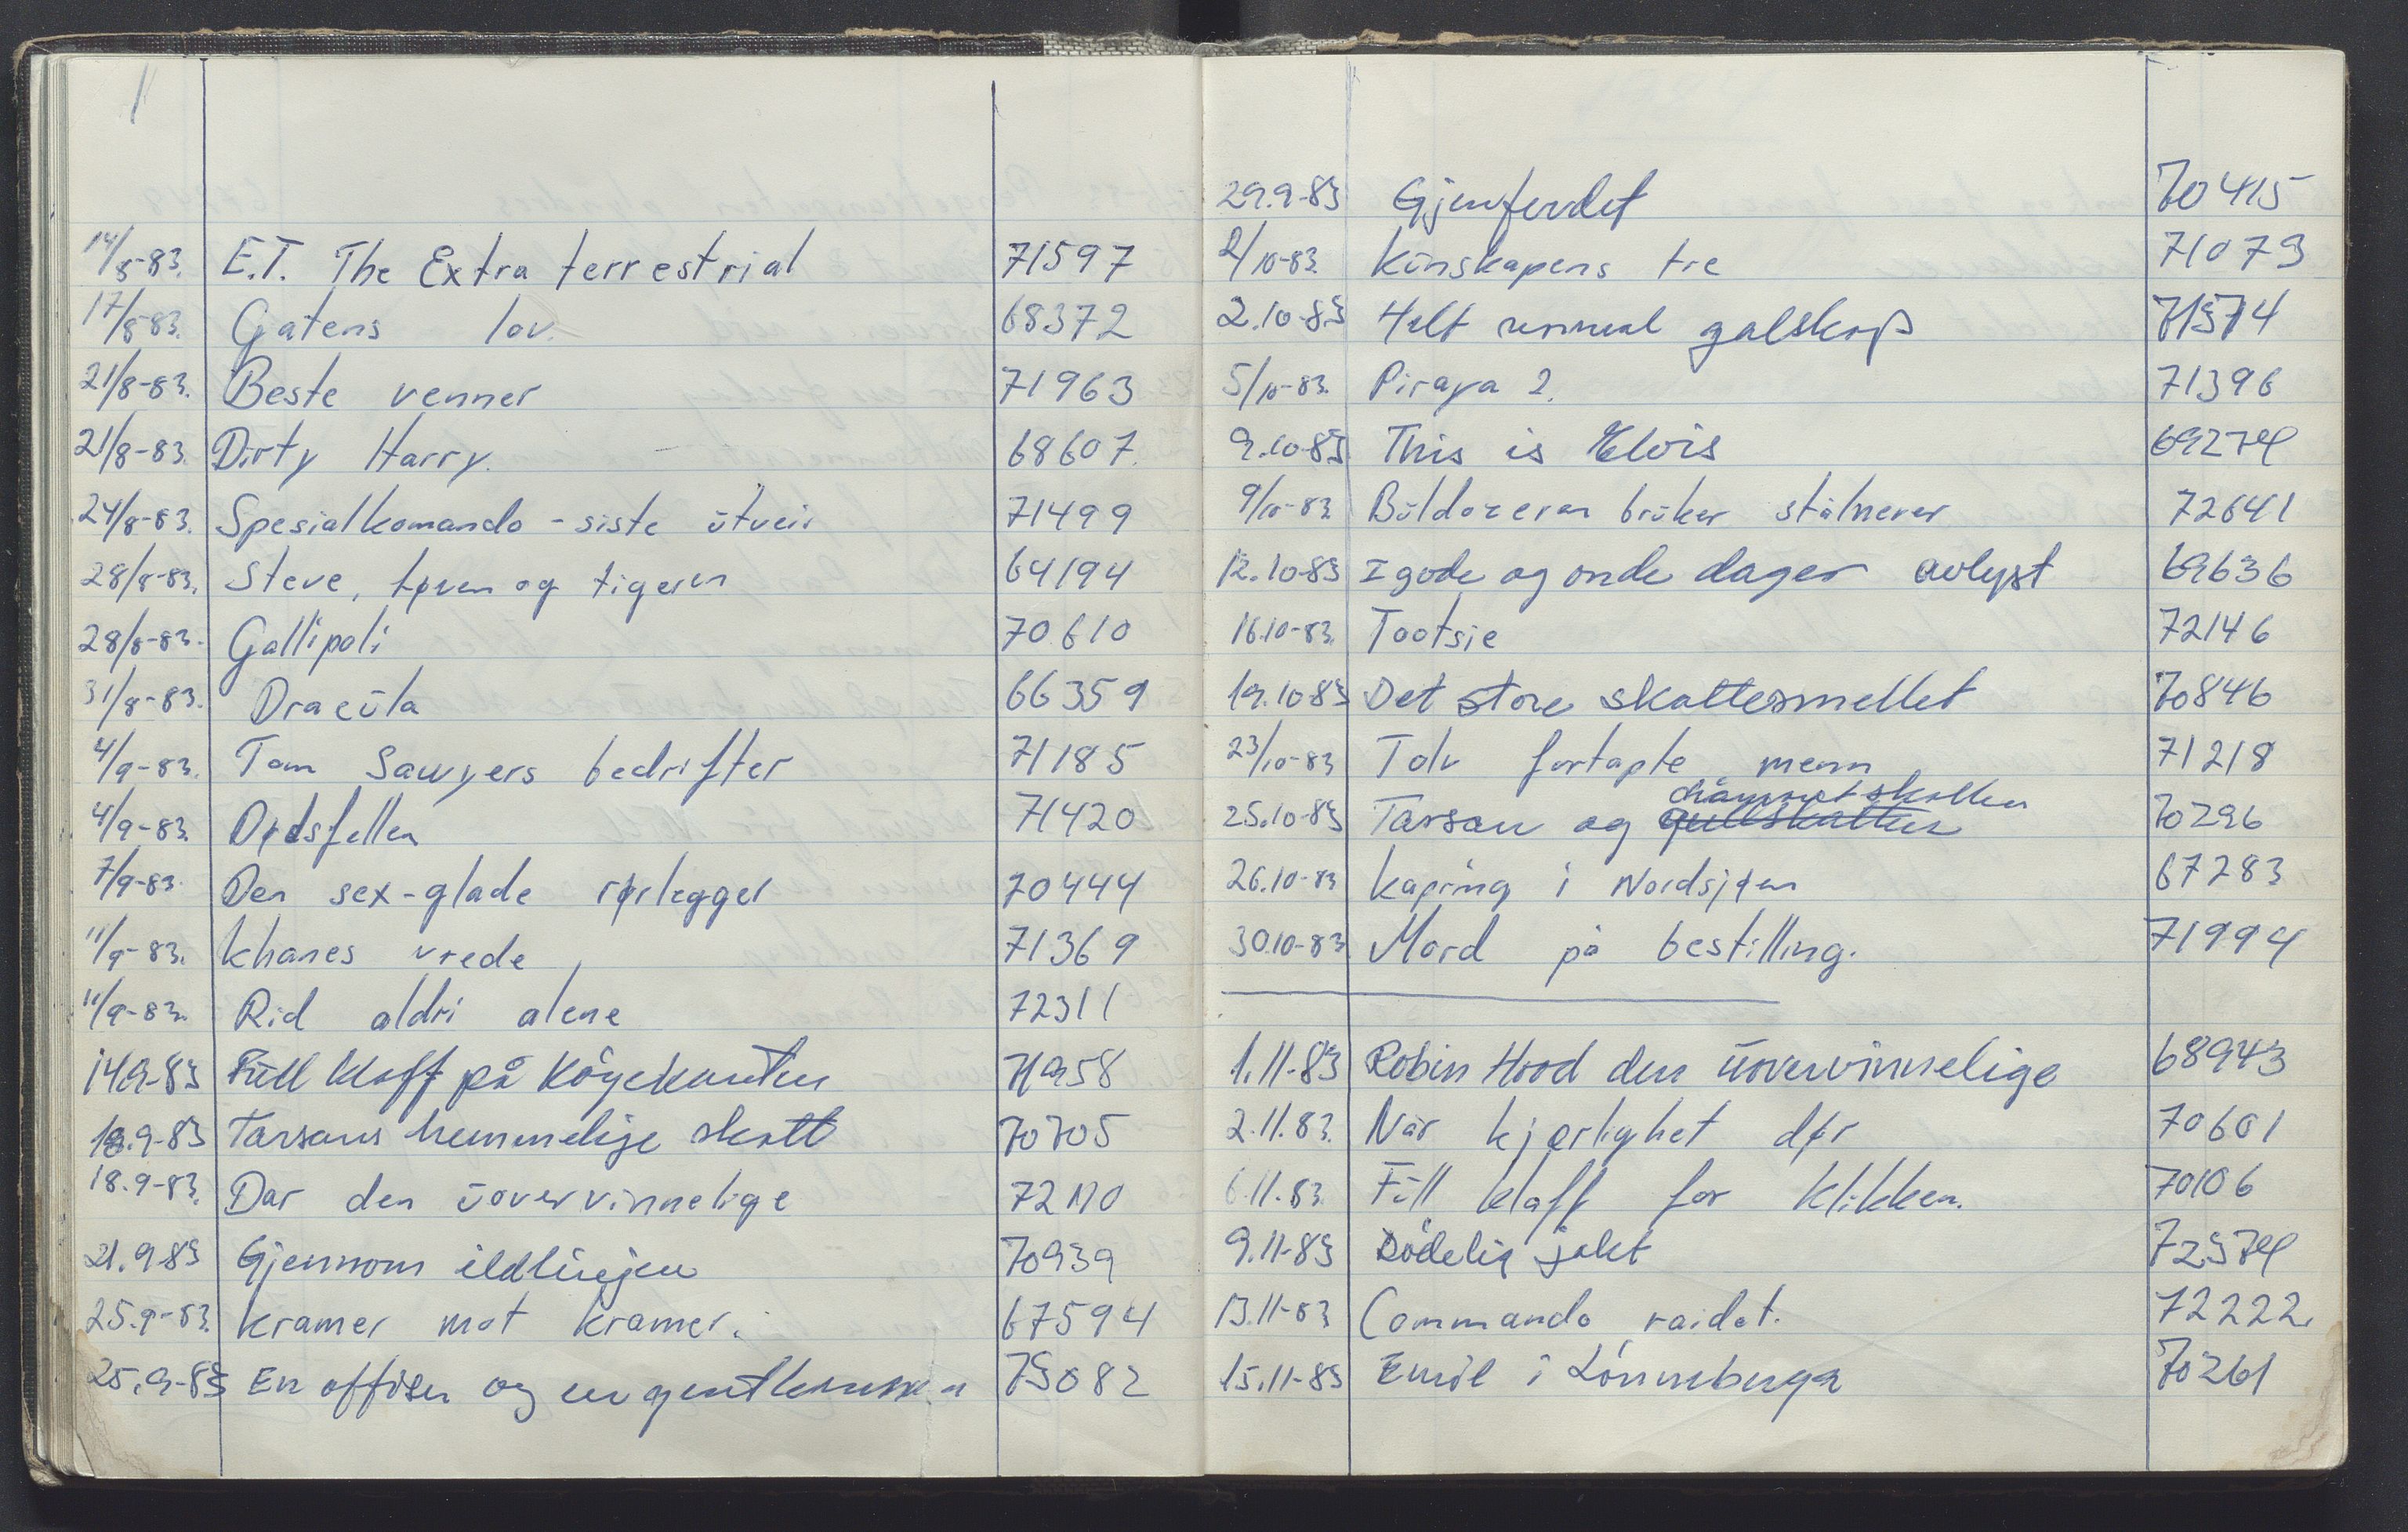 14/8-83. E.T. The Extra terrestrial 71597
17/8-83. Gatens lov. 68372
21/8-83. Beste venner 71963
21/8-83. Dirty Harry. 68607
24/8-83. Spesialkomando - siste utvei 71499
28/8-83. Steve, tøven og tigeren 64194
28/8-83. Gallipoli 70610
31/8-83. Dracula 66359
4/9-83. Tom Sawyers bedrifter 71185
4/9-83. Dødsfellen 71420
7/9-83. Den sex-glade rørlegger 70444
11/9-83. Khanes vrede 71369
11/9-83. Rid aldri alene 72311
14.9-83 Full klaff på Køyekanten 71958
18.9-83 Tarsans hemmelige skatt 70705
18.9-83. Dar den uovervinnelige 72110
21.9-83 Gjennom ildlinjen 70939
25.9-83. Kramer mot Kramer. 67594
25.9-83 En offiser og en gentleman 73082
29.9-83 Gjenferdet 70415
2/10-83. Kunskapens tre 71073
2.10-83 Helt normal galskap 71374
5/10-83. Piraya 2. 71396
9.10-83 This is Elvis 69274
9/10-83 Buldozeren bruker stålnever 72641
12.10-83 I gode og onde dager avlyst 69636
16.10-83. Tootsie 72146
19.10-83 Det store skattesmellet 70846
23/10-83 Tolv fortapte menn 71218
diamantskatten
25.10-83 Tarsan og gullskatten 70296
26.10-83 Kapring i Nordsjøen 67283
30.10-83 Mord på bestilling. 71994
1.11-83 Robin Hood den uovervinnelige 68943
2.11.83. Når kjærlighet dør 70601
6.11.83. Full klaff for klikken. 70106
9.11-83 Dødelig jakt 72374
13.11-83 Commando raidet. 72222.
15.11-83 Emil i Lønneberga 70261